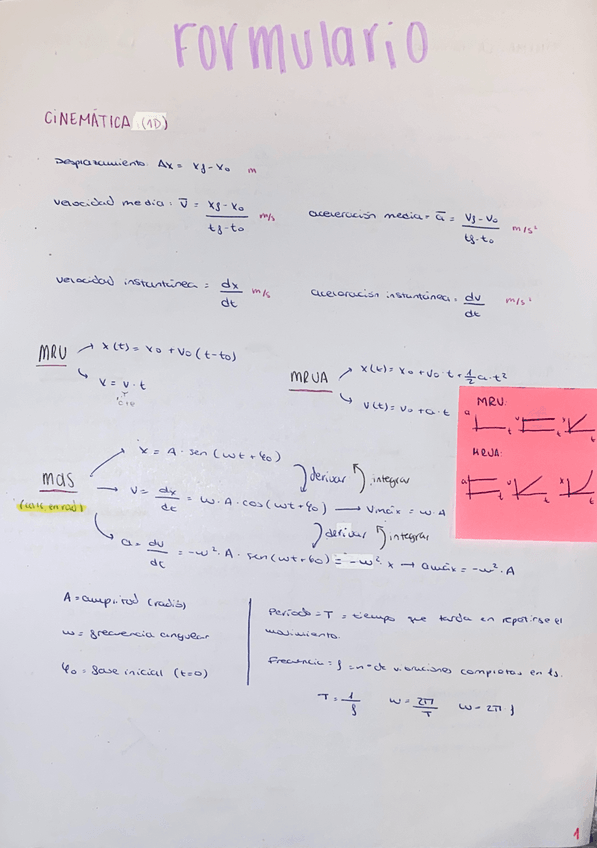 FORMULARIO
CINEMÁTICA (1D)
Desplazamiento: Δx = xf - x₀ m
velocidad media: v̄ = xf - x₀ / tf - t₀ m/s
aceleración media = ā = vf - v₀ / tf - t₀ m/s²
velocidad instantánea = dx/dt m/s
aceleración instantánea: dv/dt m/s²
MRU
x(t) = x₀ + v₀ (t - t₀)
x = v · t
cte
MRUA
x(t) = x₀ + v₀ · t + 1/2 a · t²
v(t) = v₀ + a · t
MRU:
a t v t x t
MRUA:
a t v t x t
mas
x = A · sen (ωt + φ₀)
derivar integrar
v = dx/dt = ω · A · cos (ωt + φ₀) → vmáx = ω · A
derivar integrar
a = dv/dt = -ω² · A · sen (ωt + φ₀) = -ω² · x → amáx = -ω² · A
A = amplitud (radio)
ω = frecuencia angular
φ₀ = fase inicial (t=0)
Período = T = tiempo que tarda en repetirse el
movimiento.
Frecuencia = f = nº de vibraciones completas en 1s.
T = 1/f ω = 2π/T ω = 2π · f
1